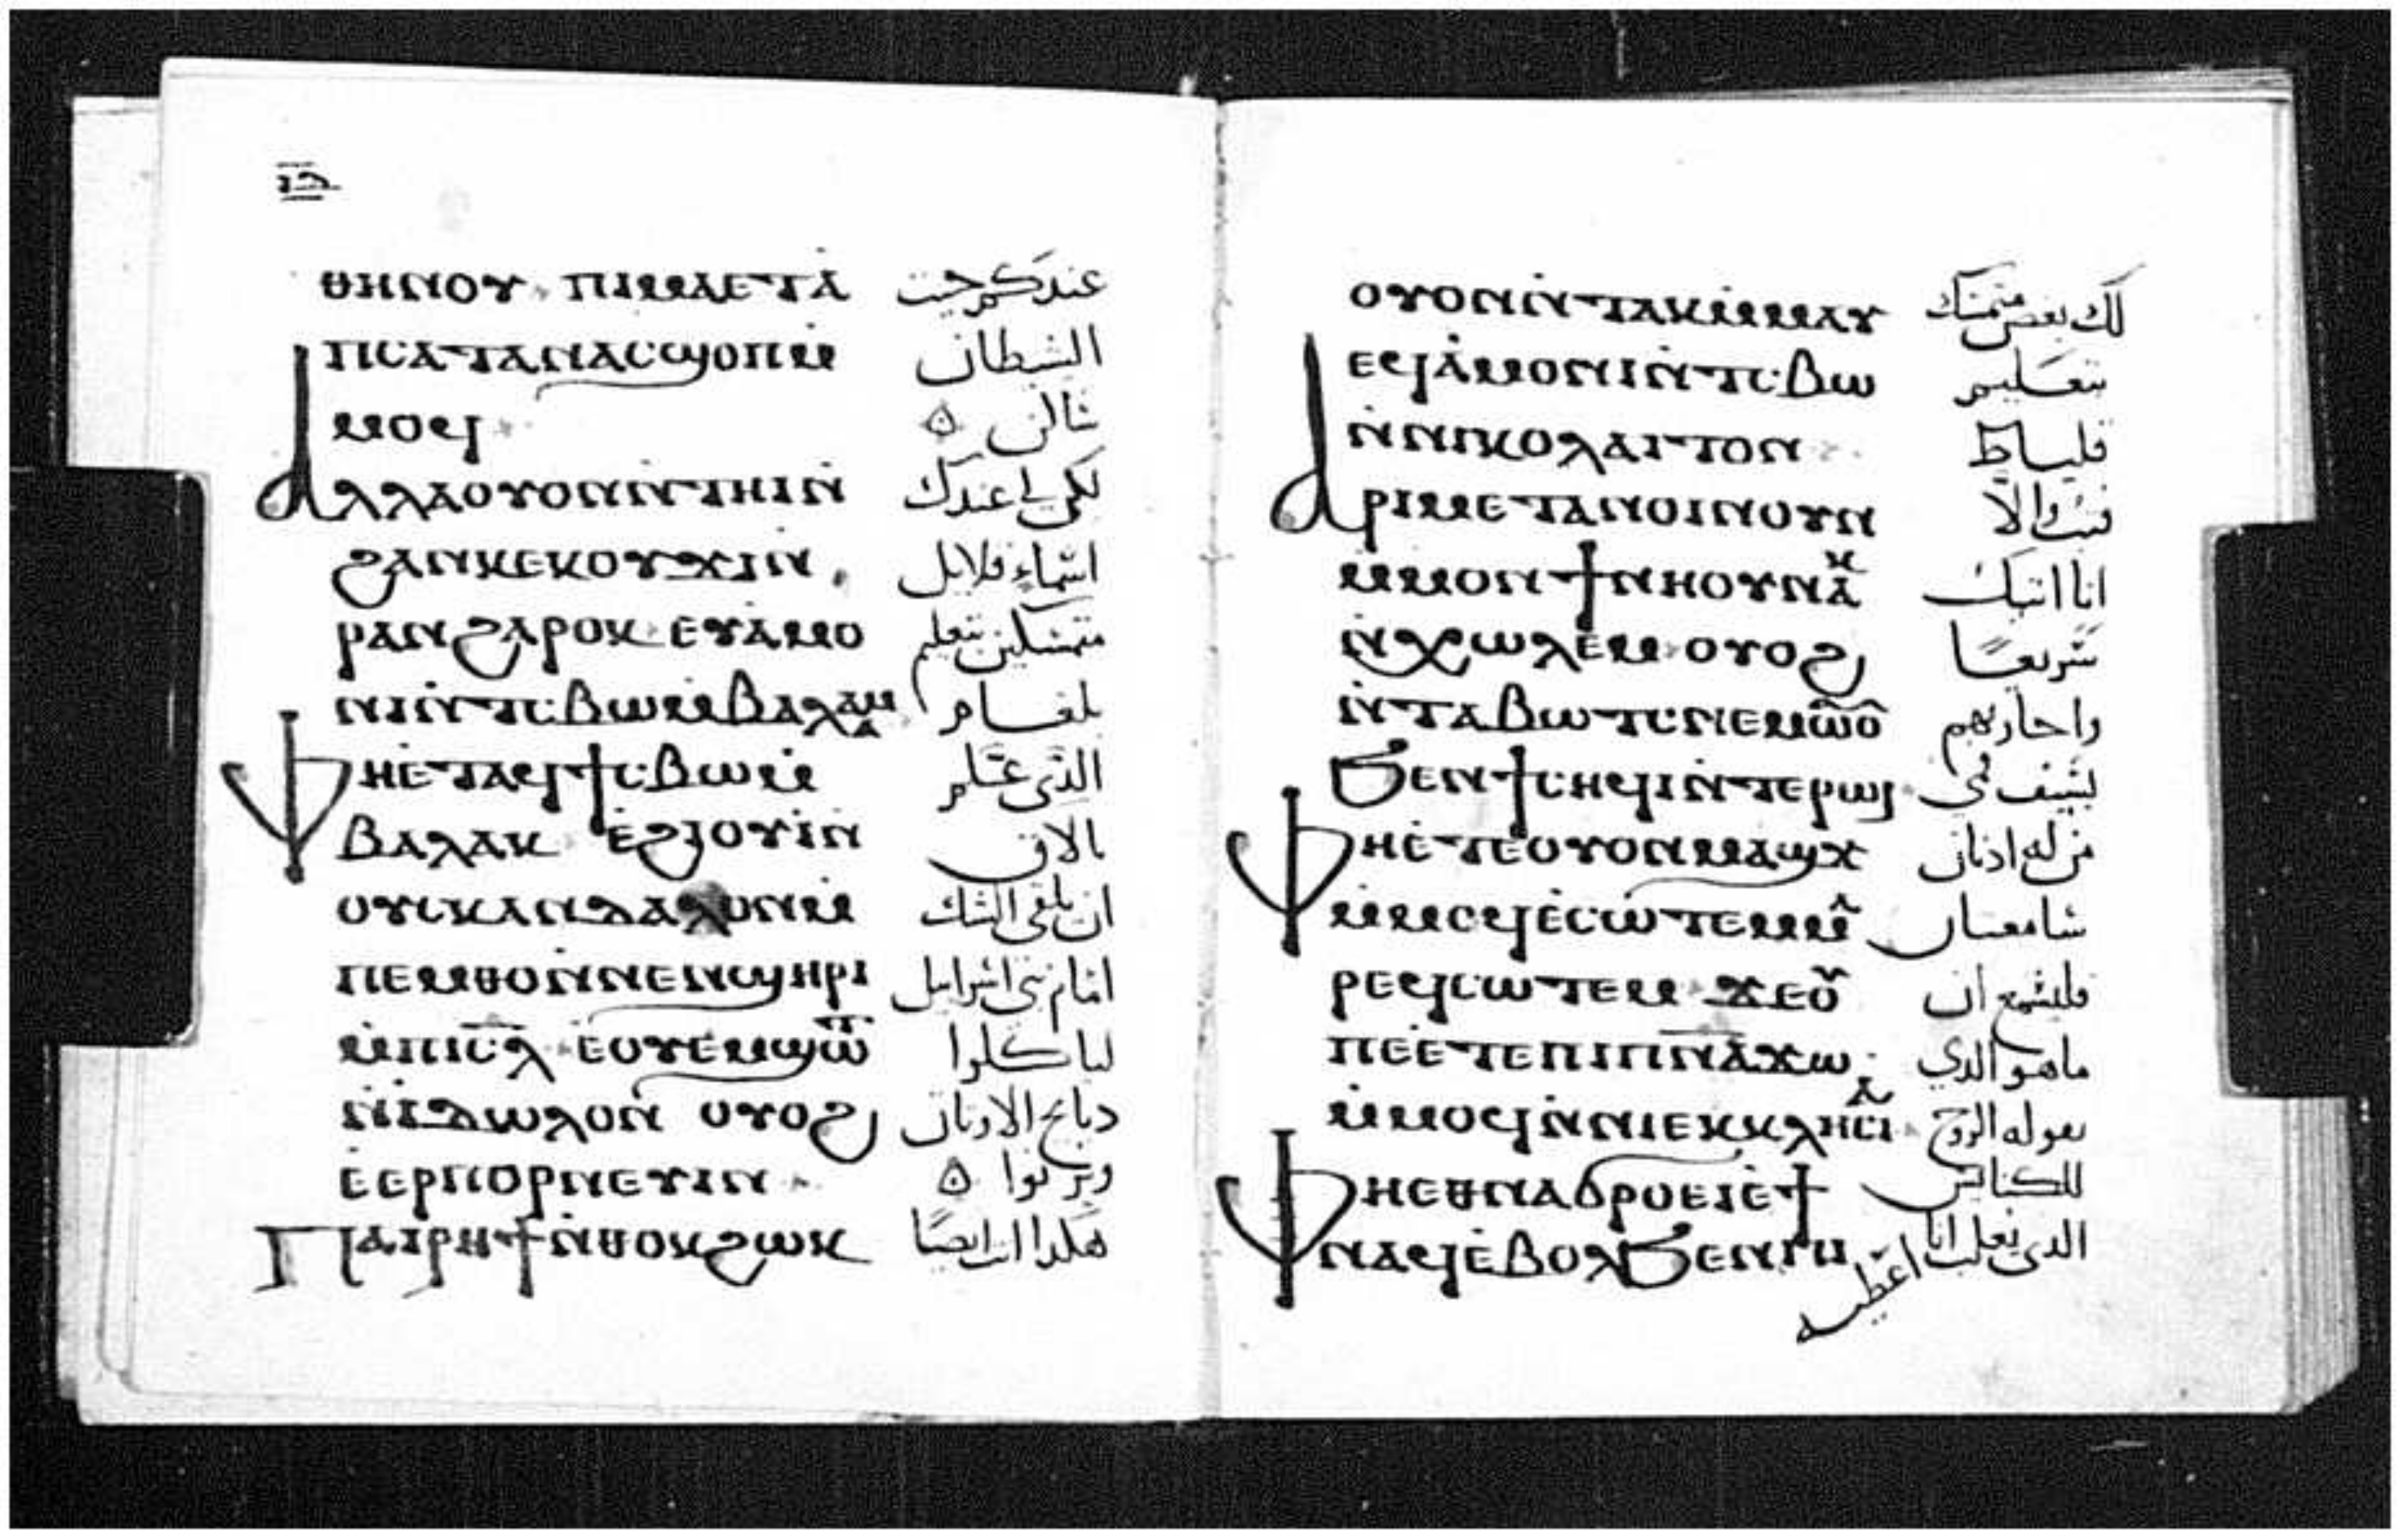 ⲓⲋ
ⲑⲏⲛⲟⲩ ⲡⲓⲙⲁⲉⲧⲁ̀ عندكم حيث
ⲡⲥⲁⲧⲁⲛⲁⲥϣⲟⲡⲙ̀ الشيطان
ⲙⲟϥ ساكن
ⲁⲗⲗⲁⲟⲩⲟⲛⲛ̀ⲧⲏⲓⲛ̀ لكن لي عندك
ϩⲁⲛⲕⲉⲕⲟⲩϫⲓⲛ̀ اسماء قلايل
ⲣⲁⲛϩⲁⲣⲟⲕ ⲉⲩⲁ̀ⲙⲟ متمسكين بتعليم
ⲛⲓⲛ̀ⲧⲥⲃⲱⲙ̀ⲃⲁⲗⲁⲁⲙ بلعام
ⲫⲏⲉ̀ⲧⲁϥϯⲥⲃⲱⲙ̀ الذي علم
ⲃⲁⲗⲁⲕ ⲉ̀ϩⲓⲟⲩⲓ̀ⲛ̀ بالاق
ⲟⲩⲥⲕⲁⲛⲇⲁⲗⲟⲛⲙ̀ ان يلقي الشك
ⲡⲉⲙⲑⲟⲛ̀ⲛⲉⲛϣⲏⲣⲓ امام بني اسرايل
ⲙ̀ⲡⲓⲥ̅ⲗ̅ ⲉ̀ⲟⲩⲉⲙϣⲱⲧ لياكلوا
ⲛ̀ⲓⲇⲱⲗⲟⲛ ⲟⲩⲟϩ دبايح الاوتان
ⲉ̀ⲉⲣⲡⲟⲣⲛⲉⲩⲓⲛ ويزنوا
ⲡⲁⲓⲣⲏϯⲛ̀ⲑⲟⲕϩⲱⲕ هكدا انت ايضا
ⲟⲩⲟⲛⲛ̀ⲧⲁⲕⲙ̀ⲙⲁⲩ لك بعض متمسك
ⲉϥⲁ̀ⲙⲟⲛⲓⲛ̀ⲧⲥⲃⲱ بتعليم
ⲛ̀ⲛⲓⲕⲟⲗⲁⲓⲧⲟⲛ
ⲁⲣⲓⲙⲉⲧⲁⲛⲟⲓⲛⲟⲩⲛ فتب والا
ⲙ̀ⲙⲟⲛ ϯⲛⲏⲟⲩⲛⲁⲕ انا اتيك
ⲛ̀ⲭⲱⲗⲉⲙ ⲟⲩⲟϩ سريعًا
ⲛ̀ⲧⲁⲃⲱⲧⲥⲛⲉⲙⲱⲟⲩ واحاربهم
ϧⲉⲛϯⲥⲏϥⲓⲛ̀ⲧⲉⲣⲱϥ بسيف في
ⲫⲏⲉ̀ⲧⲉⲟⲩⲟⲛⲙⲁϣϫ من له ادنان
ⲙ̀ⲙⲟϥⲉ̀ⲥⲱⲧⲉⲙⲙⲁ سامعتان
ⲣⲉϥⲥⲱⲧⲉⲙ ϫⲉⲟⲩ فليسمع ان
ⲡⲉⲉ̀ⲧⲉⲡⲓⲡ̅ⲛ̅ⲁ̅ϫⲱ ما هو الدي
ⲙ̀ⲙⲟϥⲛ̀ⲛⲓⲉⲕⲕⲗⲏⲥⲓⲁ يقوله الروح
ⲫⲏⲉⲑⲛⲁϭⲣⲟⲉⲓⲉ̀ϯ للكنايس
ⲛⲁϥⲉ̀ⲃⲟⲗϧⲉⲛⲡⲓ الدى يغلب انا
اعطيه